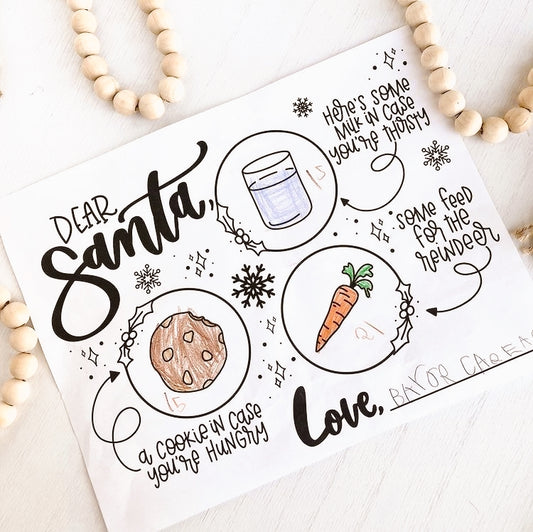 DEAR
Santa,
HERE'S SOME
MILK IN CASE
YOU'RE THIRSTY
15
SOME FEED
FOR THE
REINDEER
21
15
A COOKIE IN CASE
YOU'RE HUNGRY
Love,